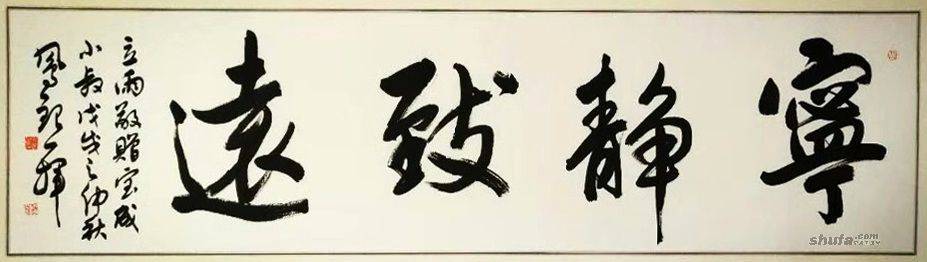 寧静致遠
立雨敬贈宝成
小叔戊戌之仲秋
鳳
shufa.com